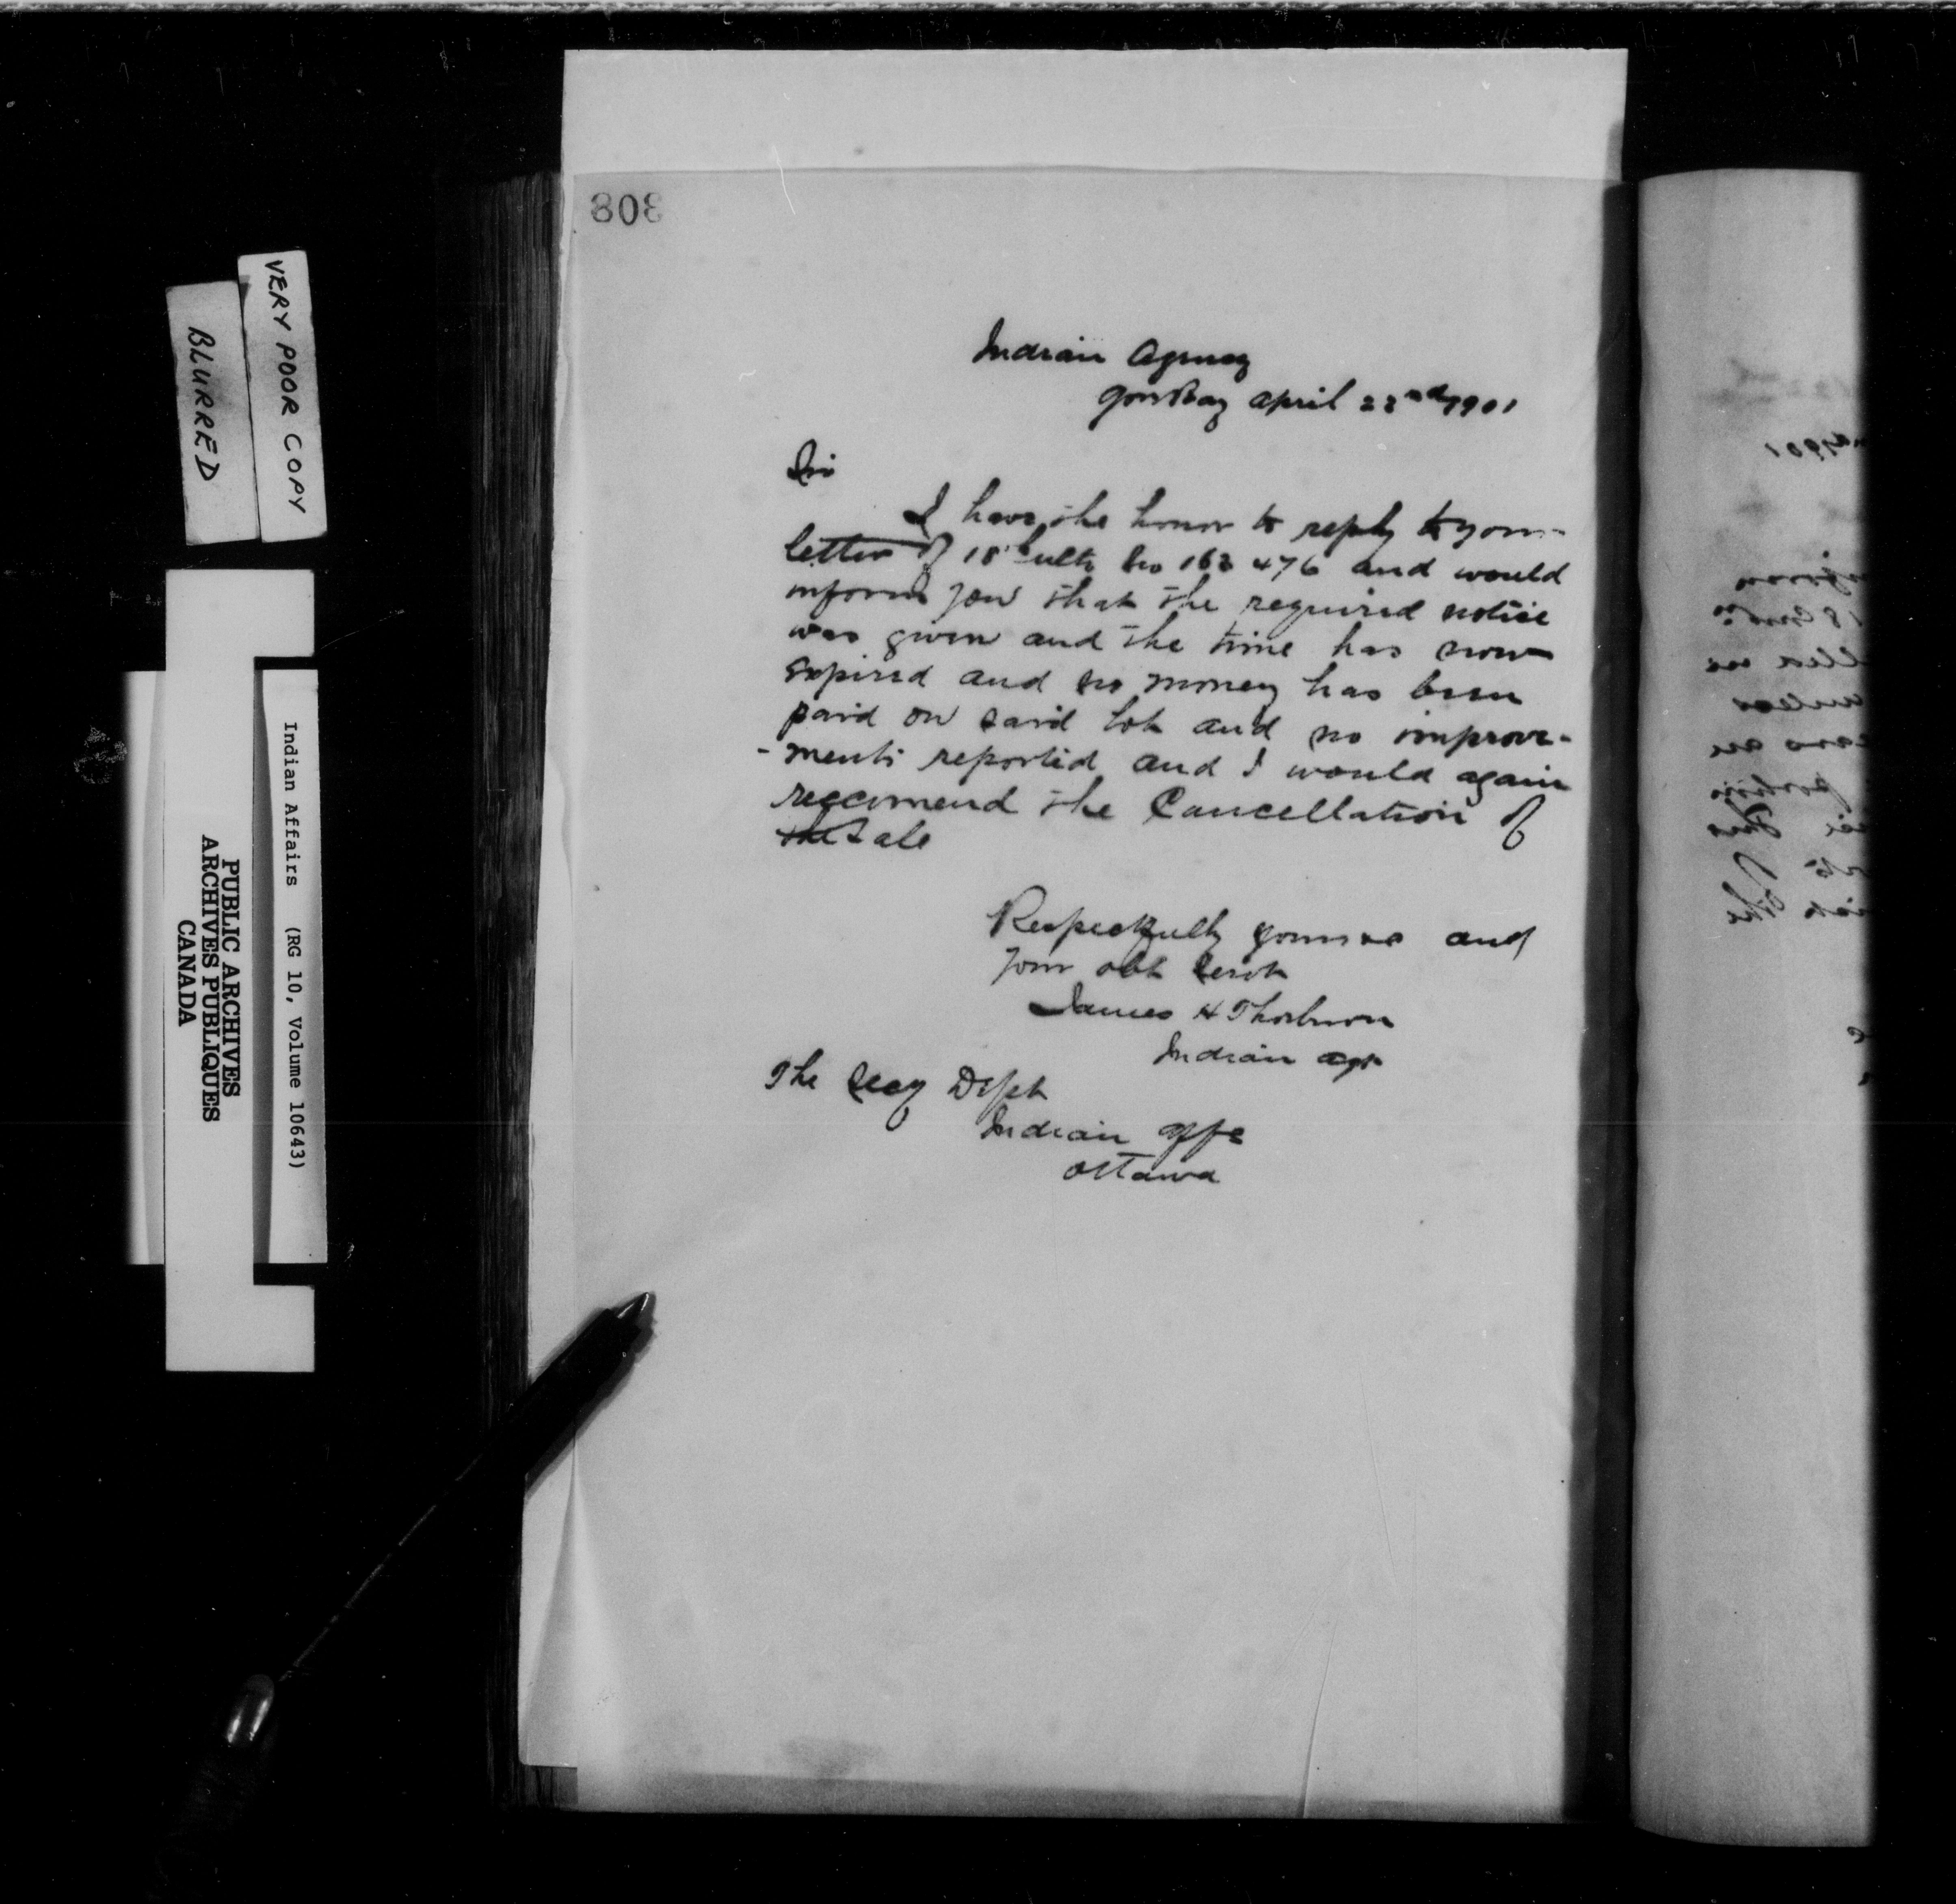 808
Indian Agency
Gore Bay April 22nd 1901
Sir
I have the honor to reply to your
letter of 18th ulto No 163 476 and would
inform you that the required notice
was given and the time has now
expired and no money has been
paid on said lot and no improve-
-ments reported and I would again
reccomend the Cancellation of
the Sale
Respectfully yours and
your obt servt
James H Thorburn
Indian agt
The Secy Dept
Indian Affs
Ottawa
VERY POOR COPY
BLURRED
Indian Affairs (RG 10, Volume 10643)
PUBLIC ARCHIVES
ARCHIVES PUBLIQUES
CANADA